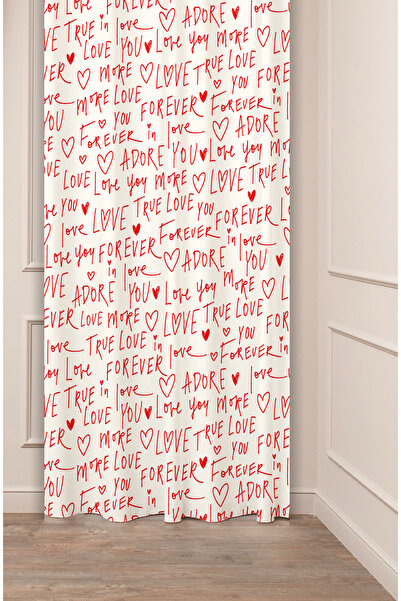 FOREVER
VE TRUE in love FOREVER in
LOVE YOU Love you TRUE L
ER MORE LOVE YOU FOR
MORE LOVE FOREVER ADORE
YOU FOREVER in love
ADORE YOU Love you M
LOVE Love you MORE LOVE TRU
YOU LOVE TRUE LOVE YOU
love FOREVER FOREVER in
Love you in love
LOVE ADORE YOU Love you L
EVER LOVE MORE LOVE TRUE LOVE
love TRUE LOVE YOU FOREVER in
you Love FOREVER love
TRUE in love ADORE love
LOVE YOU Love you MORE
ER MORE LOVE TRUE LOVE
MORE LOVE FOREVER FOREVER
YOU in love in
FOREVER ADORE